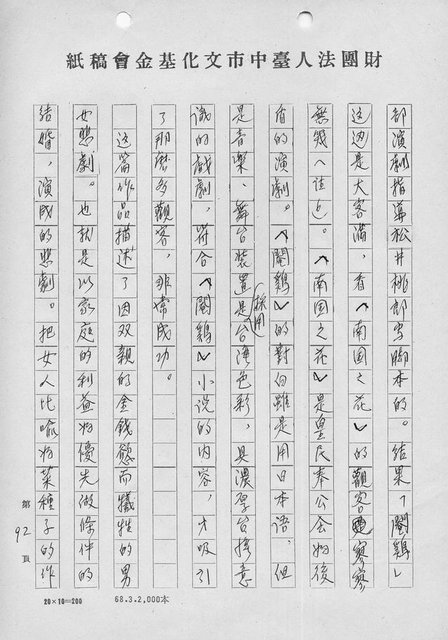 財團法人臺中市文化基金會稿紙
部演劇指導松井桃郎寫腳本的。結果「閹鷄」
這边是大客滿,看〈南国之花〉的觀客寥寥
無幾〈佳也〉。〈南国之花〉是皇民奉公会的後
盾的演劇。〈閹鷄〉的對白雖是用日本語,但
是音樂、舞台裝置是採用台湾色彩,具濃厚台灣意
識的戲劇,符合〈閹鷄〉小说的内容,才吸引
了那麽多觀客,非常成功。
這篇作品描述了因双親的金錢慾而犧牲的男
女悲劇。也就是以家庭的利益為優先做條件的
結婚,演成的悲劇。把女人比喻為菜種子的作
第92頁
20×10=200
68.3.2,000本